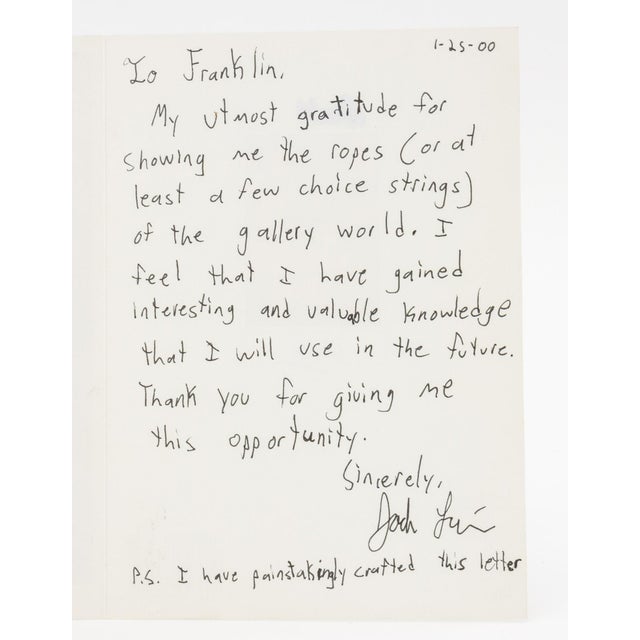 1-25-00
To Franklin,
My utmost gratitude for
showing me the ropes (or at
least a few choice strings)
of the gallery world. I
feel that I have gained
interesting and valuable knowledge
that I will use in the future.
Thank you for giving me
this opportunity.
Sincerely,
P.S. I have painstakingly crafted this letter